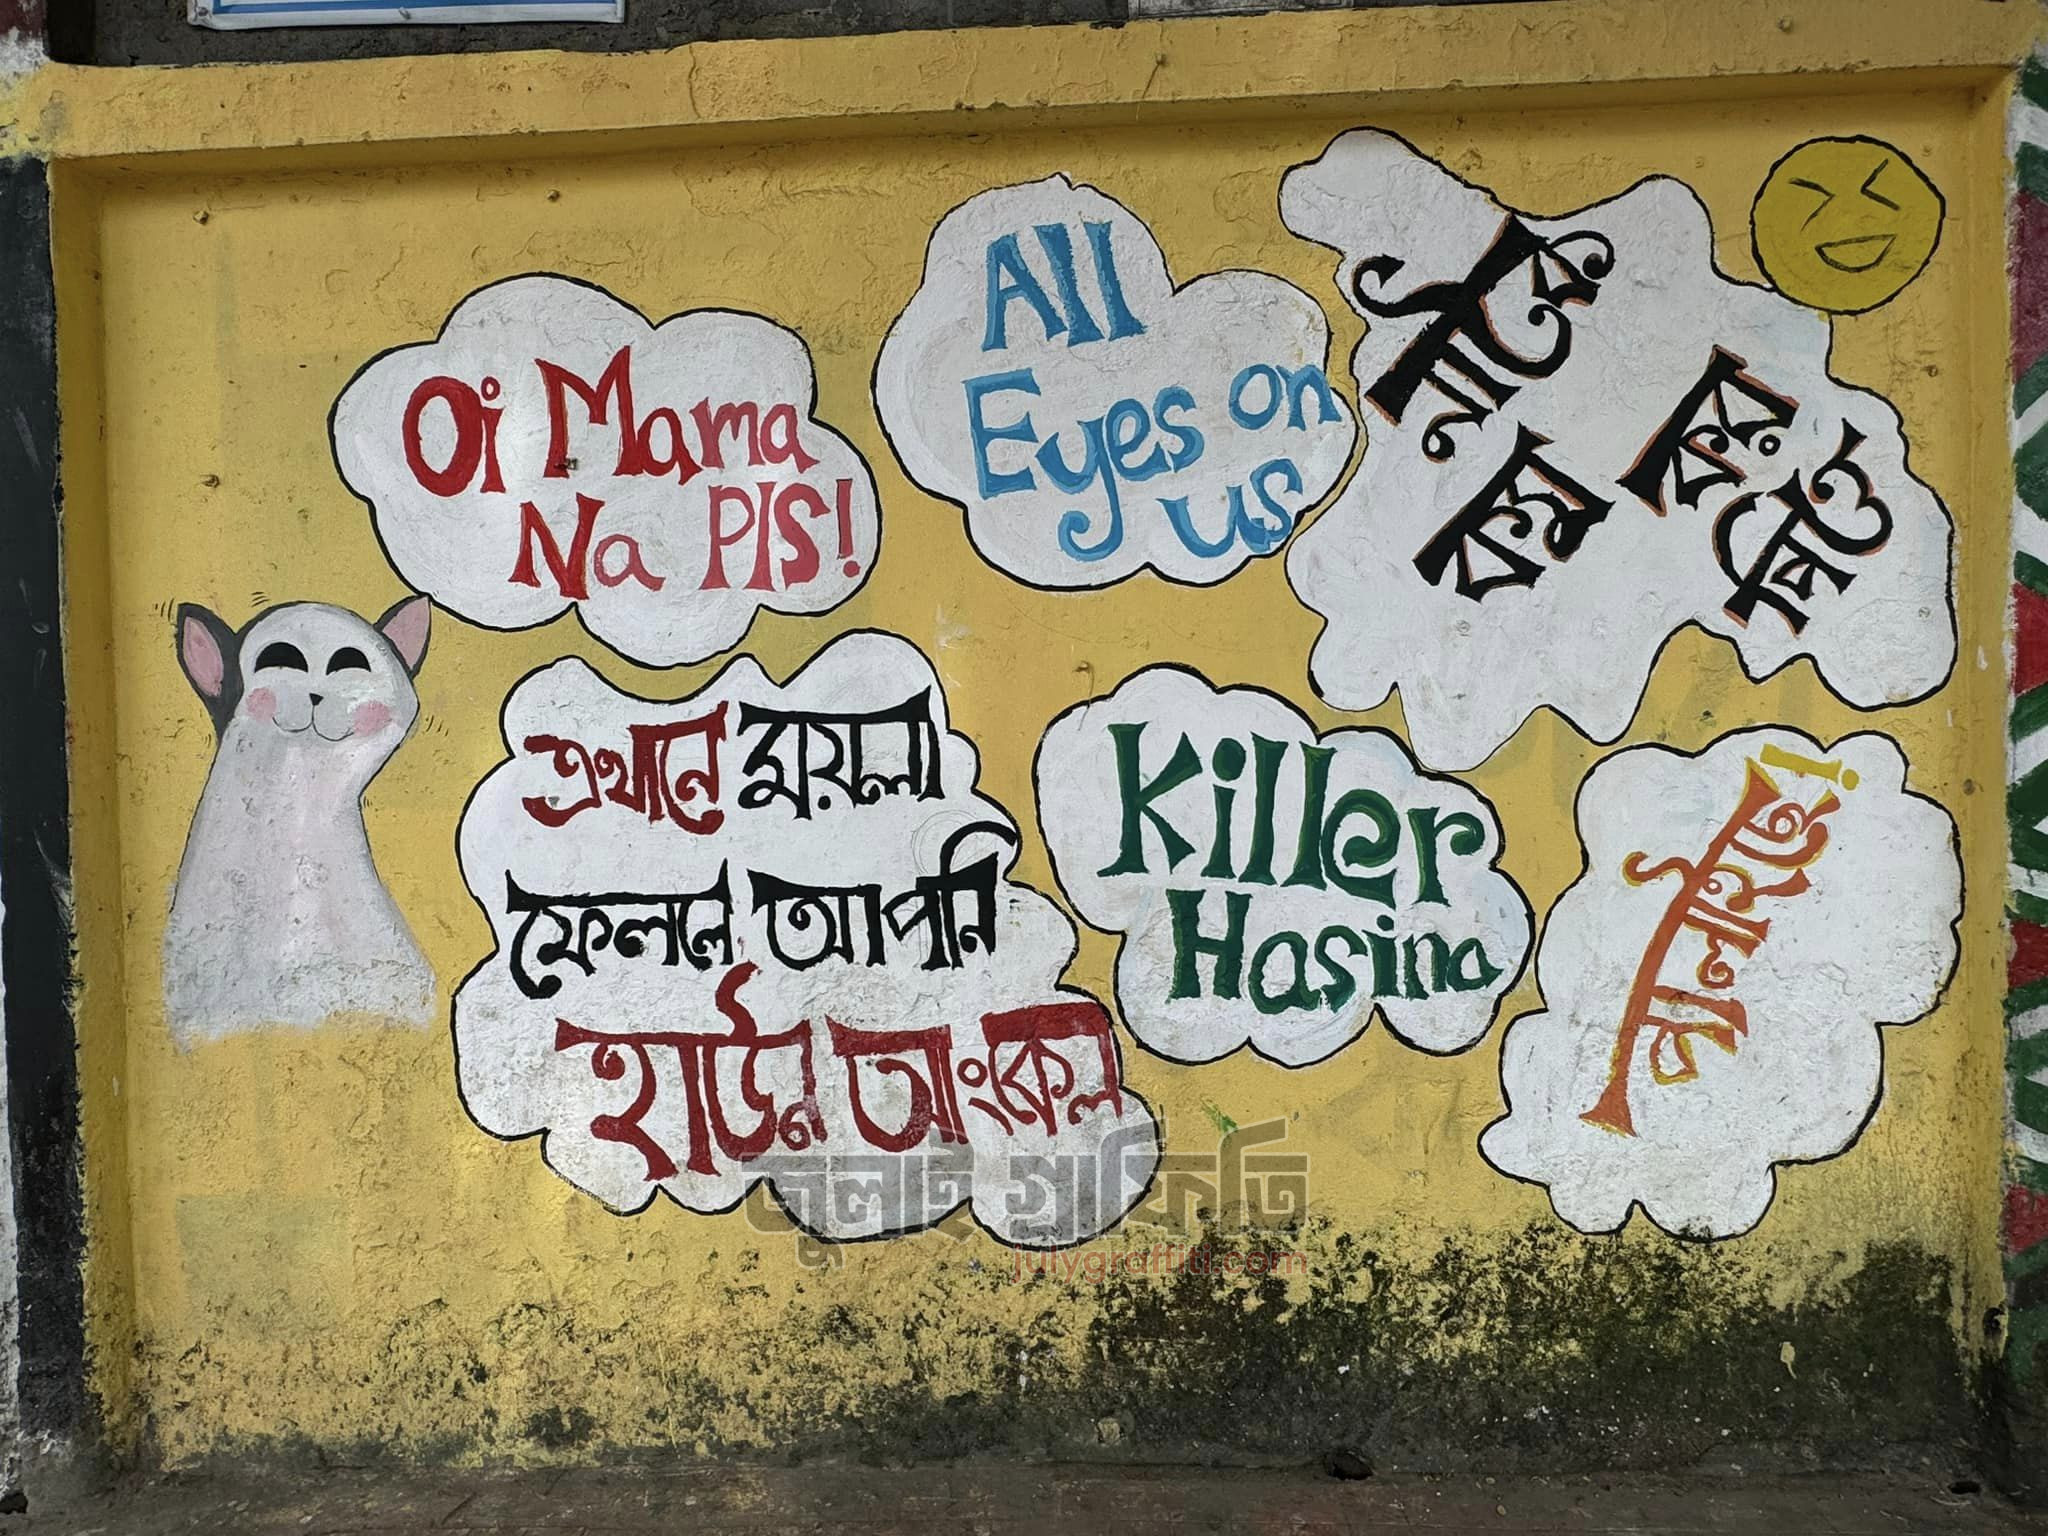 Oi Mama
Na Pls!
All
Eyes on
us
নাটক
কম কর
পিও
এখানে ময়লা
ফেললে আপনি
হাউন আংকেল
Killer
Hasina
পালাইছে!
জুলাই গ্রাফিতি
julygraffiti.com